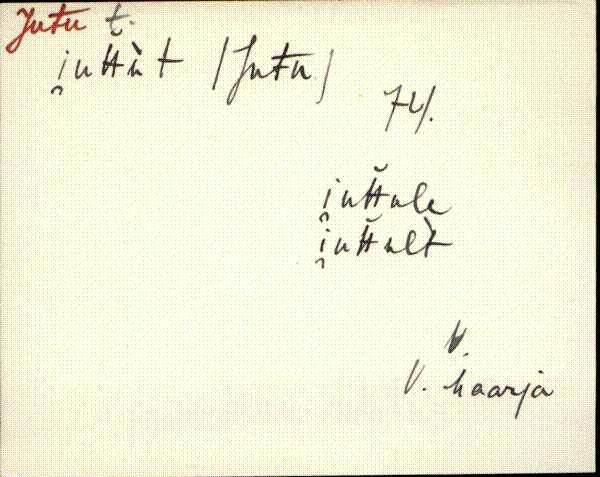 Jutu t.
i̮utt̆ù t (Jutu)
74.
i̮utt̆ule
i̮utt̆ult̀
V.
V. Maarja